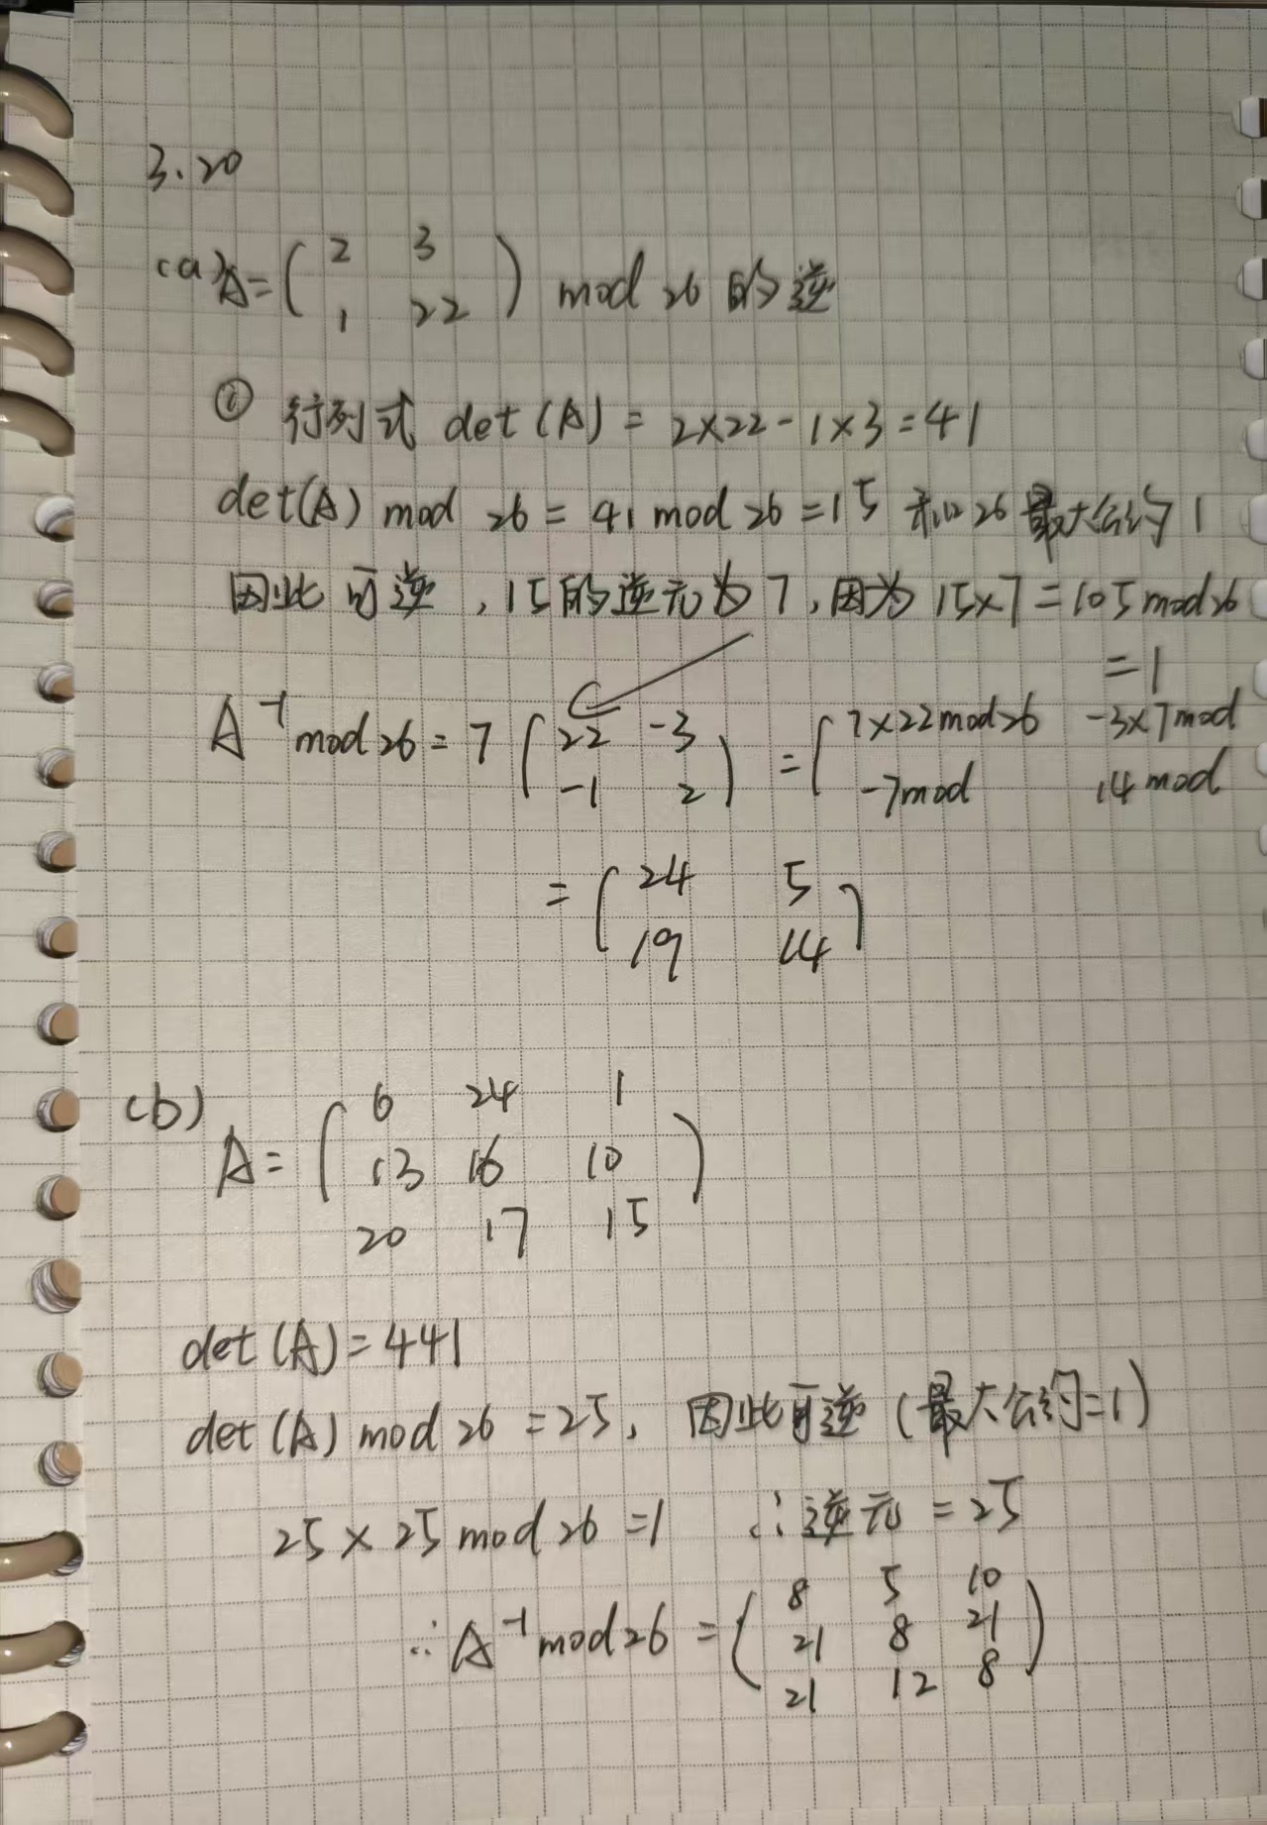 3.20
(a) A = ( 2 3
1 22 ) mod 26 的逆
① 行列式 det(A) = 2×22-1×3=41
det(A) mod 26 = 41 mod 26 = 15 和26 最大公约 1
因此可逆，15的逆元为7，因为 15×7=105 mod 26
=1
A⁻¹ mod 26 = 7 ( 22 -3
-1 2 ) = ( 7×22 mod 26 -3×7 mod
-7 mod 14 mod
= ( 24 5
19 14 )
(b)
A = ( 6 24 1
13 16 10 )
20 17 15
det(A) = 441
det(A) mod 26 = 25, 因此可逆 (最大公约=1)
25 × 25 mod 26 = 1 ∴逆元 = 25
∴ A⁻¹ mod 26 = ( 8 5 10
21 8 21 )
21 12 8